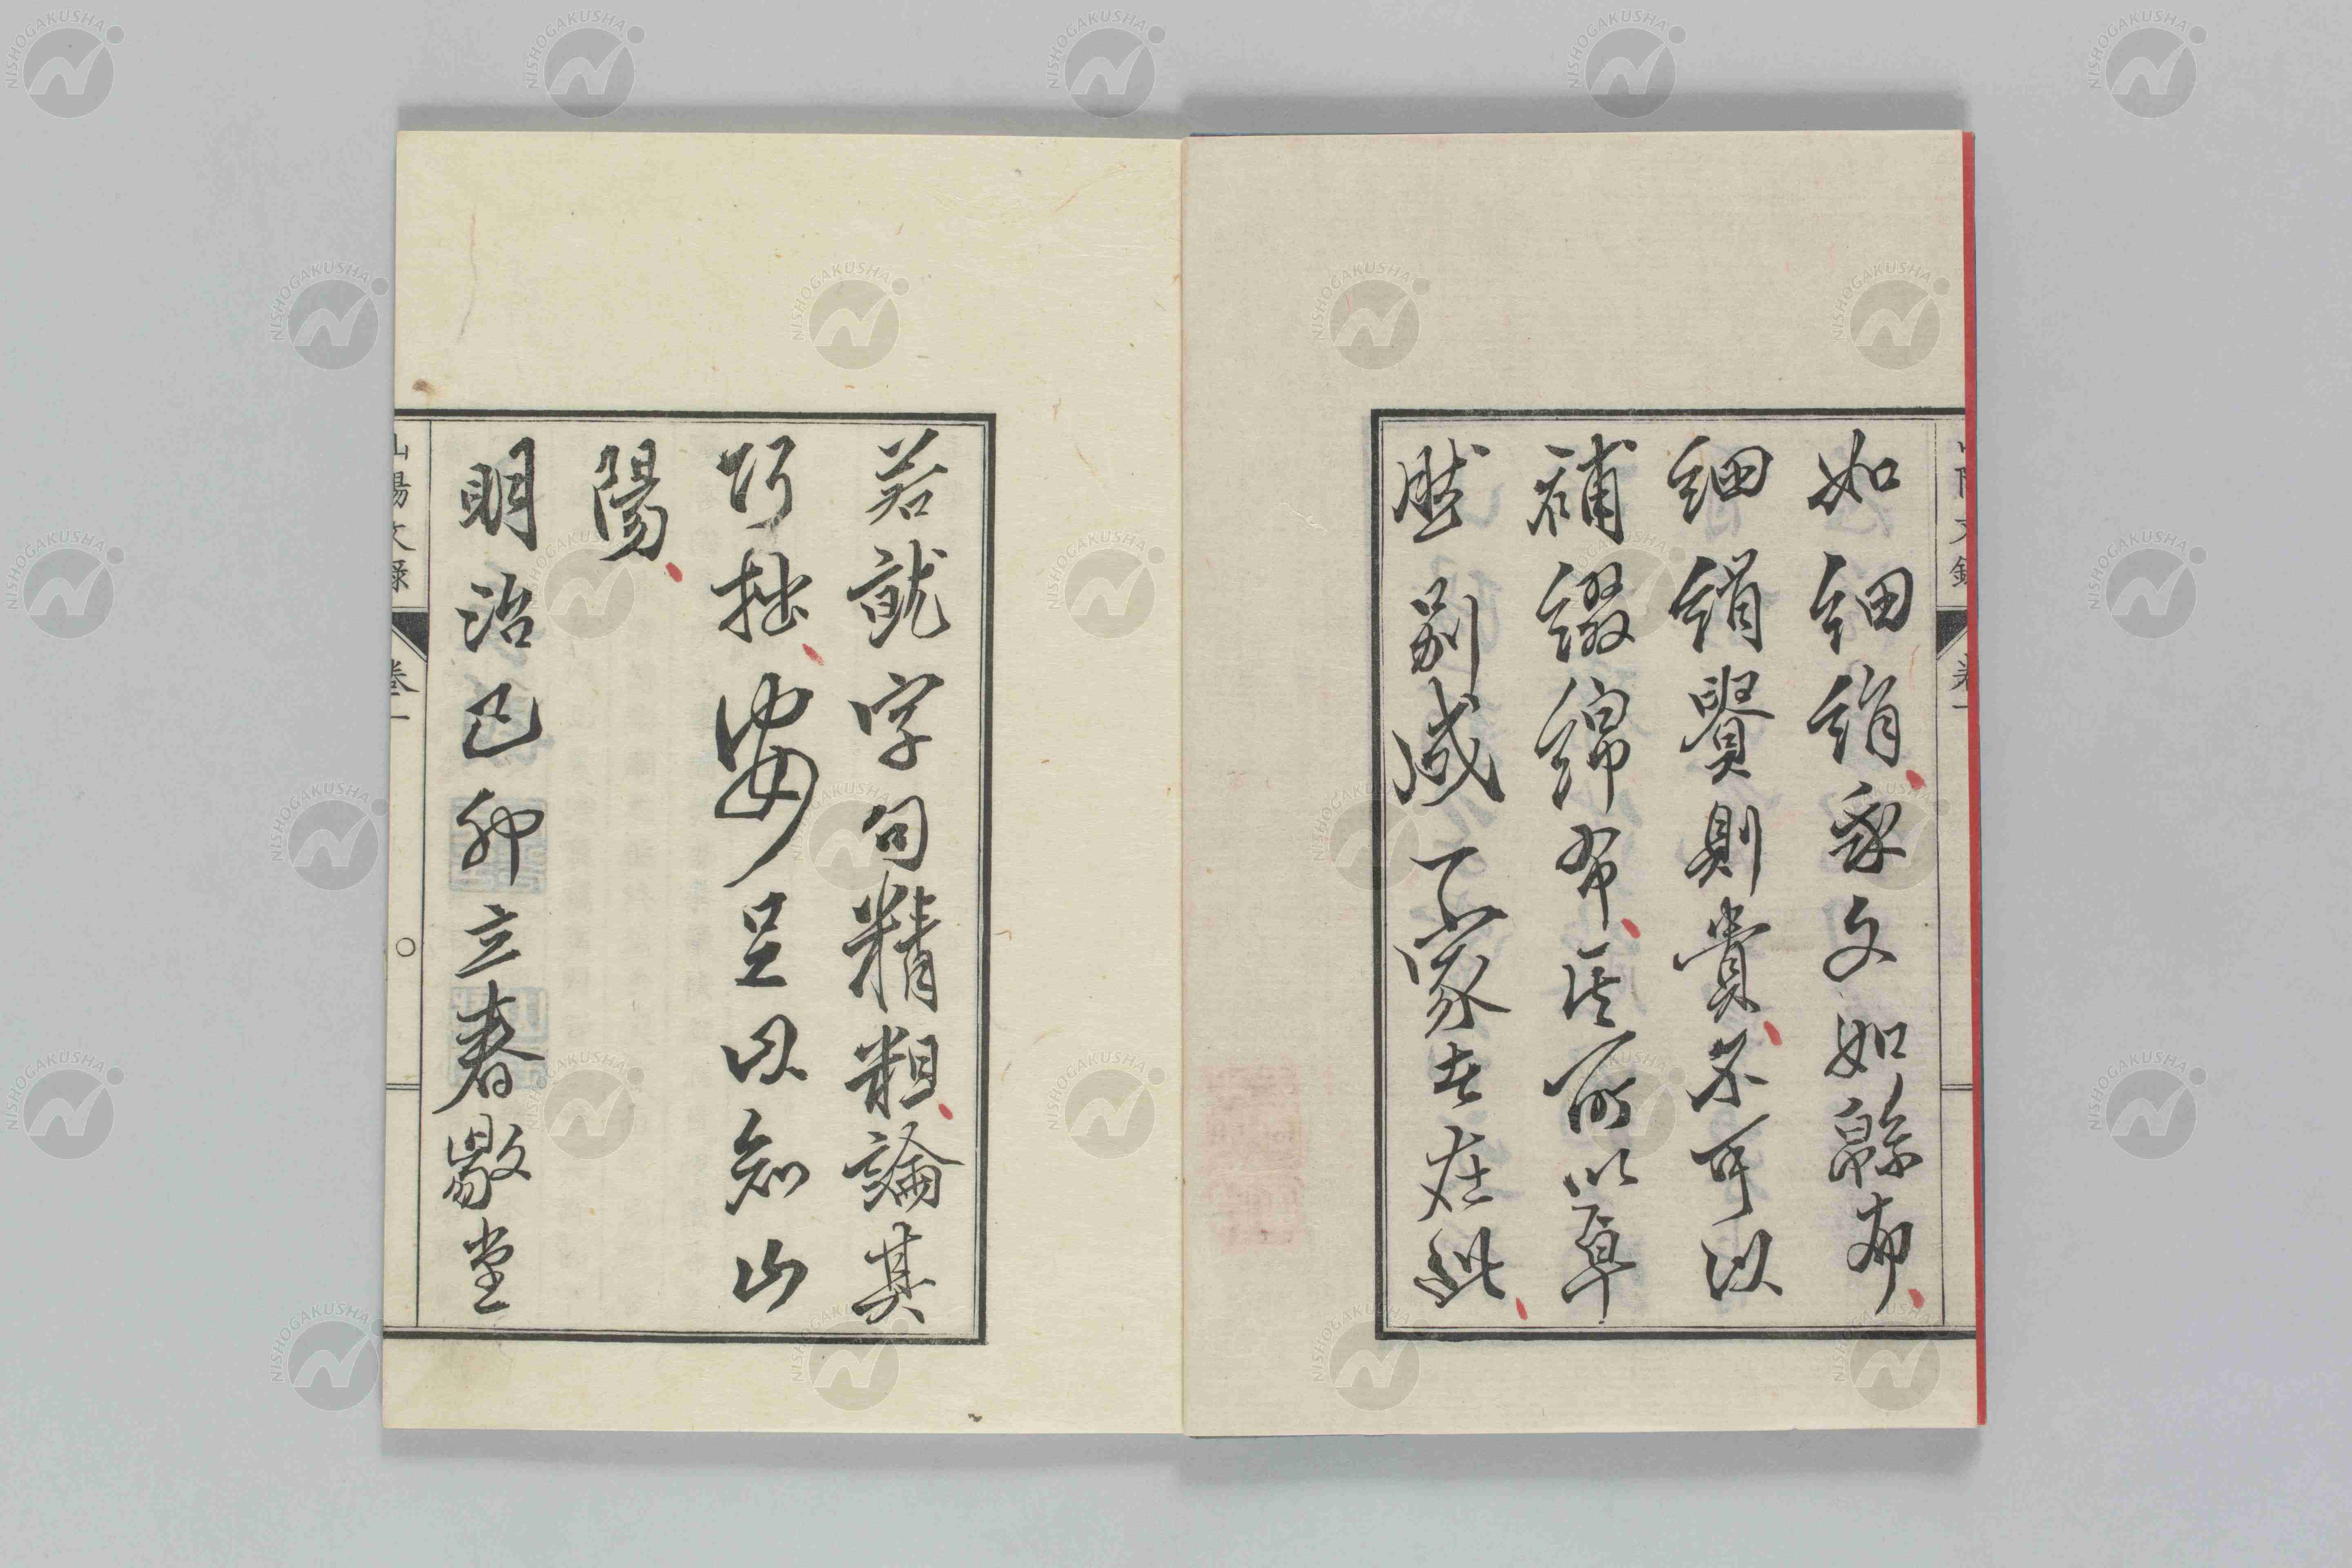 如細絹氶文如緜布
細絹貴則貴不可以
補綴綿布是所以草
然別成一家者在此
若就字句精粗論其
巧拙安足以知山
陽
明治己卯立春敬堂
山陽文錄
卷一
NISHOGAKUSHA